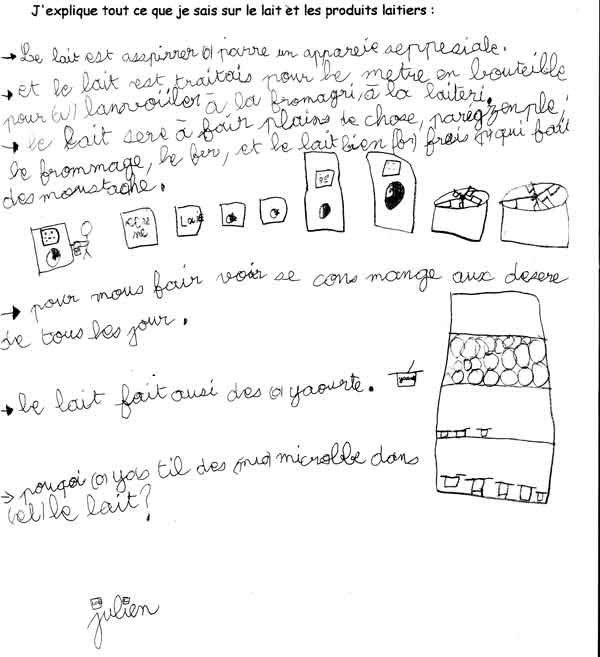 J'explique tout ce que je sais sur le lait et les produits laitiers :
→ Le lait est asspirrer (a) parre un appareie seppesiale.
→ et le lait est traitais pour le metre en bouteible
pour (v) lanvoiiler à la fromagri, à la laiteri.
→ le lait sere à fair plains de chose, parégzenple,
le frommage, le ber, et le lait bien (br) frais qui fait
des moustache.
Lait
→ pour nous fair voir se cons mange aux desere
de tous les jour.
→ le lait fait ausi des (a) yaourte.
→ pouqoi (a) yas til des (mia) microbbe dans
(el) le lait?
julien